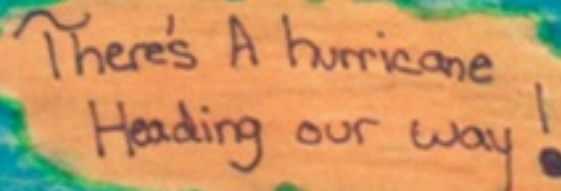 There's A hurricane
Heading our way!